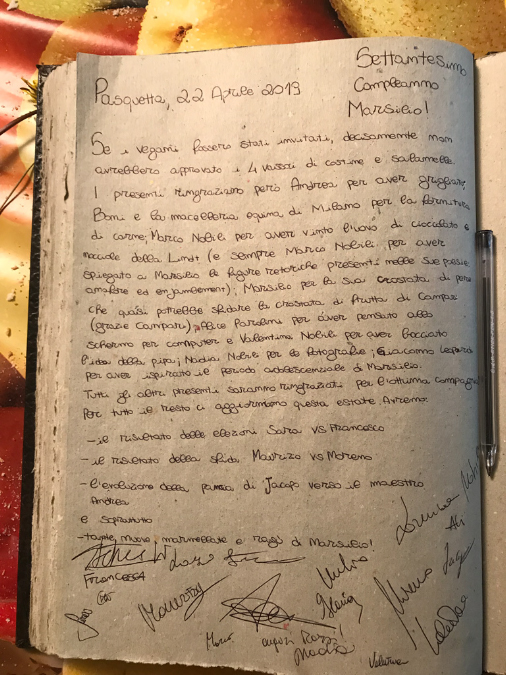 Settantesimo
Compleanno
Marsilio!
Pasquetta, 22 Aprile 2019
Se i vegani fossero stati invitati, decisamente non
avrebbero approvato i 4 vassoi di costine e salamelle.
I presenti ringraziano però Andrea per aver grigliato;
Bomi e la macelleria equina di Milano per la fornitura
di carne; Marco Nobili per aver vinto l'uovo di cioccolato e
nocciole della Lindt (e sempre Marco Nobili per aver
spiegato a Marsilio le figure retoriche presenti nelle sue poesie
anafore ed enjambement); Marsilio per la sua crostata di pere
che quasi potrebbe sfidare la crostata di frutta di Campari
(grazie Campari); Alice Parolini per aver pensato allo
schermo per computer e Valentina Nobili per aver bocciato
l'idea della pipa; Nadia Nobili per le fotografie; Giacomo Leopardi
per aver ispirato il periodo adolescenziale di Marsilio.
Tutti gli altri presenti saranno ringraziati per l'ottima compagnia!
Per tutto il resto ci aggiorniamo questa estate. Avremo:
-il risultato delle elezioni Sara vs Francesco
-il risultato della sfida Maurizio vs Moreno
-l'evoluzione della paura di Jacopo verso il maestro
Andrea
e soprattutto
-tante, nuove, marmellate e ragù di Marsilio!
Francesca
Marco
Nadia
Valentina